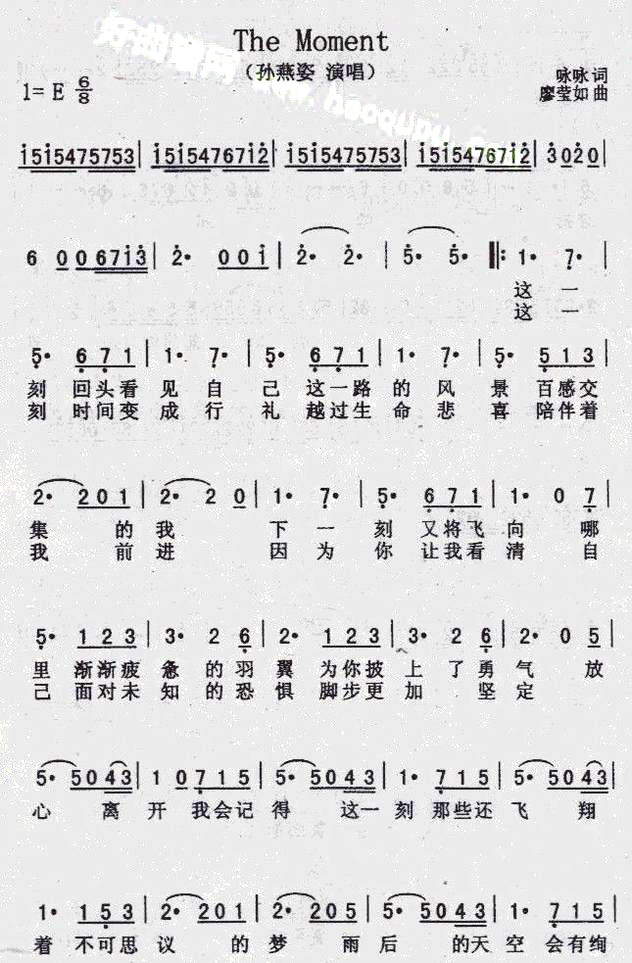 好曲谱网 www.haoqupu.com
The Moment
(孙燕姿 演唱)
1= E 6/8
咏咏 词
廖莹如 曲
1515475753 | 1515476712 | 1515475753 | 1515476712 | 3020 |
6 0 0 6 7 1 3 | 2· 0 0 1 | 2· 2· | 5· 5· ‖: 1· 7· |
这 一
这 一
5· 6 7 1 | 1· 7· | 5· 6 7 1 | 1· 7· | 5· 5 1 3 |
刻 回头看 见 自 己 这一路 的 风 景 百感交
刻 时间变 成 行 礼 越过生 命 悲 喜 陪伴着
2· 2 0 1 | 2· 2 0 | 1· 7· | 5· 6 7 1 | 1· 0 7 |
集 的 我 下 一 刻 又将飞 向 哪
我 前 进 因 为 你 让我看 清 自
5· 1 2 3 | 3· 2 6 | 1· 1 2 3 | 3· 2 6 | 2· 0 5 |
里 渐渐疲 惫 的 羽 翼 为你披 上 了 勇 气 放
己 面对未 知 的 恐 惧 脚步更 加 坚 定
5· 5 0 4 3 | 1 0 7 1 5 | 5· 5 0 4 3 | 1· 7 1 5 | 5· 5 0 4 3 |
心 离 开 我会记 得 这一 刻 那些还 飞 翔
1· 1 5 3 | 2· 2 0 1 | 2· 2 0 1 | 5· 5 5 4 | 3· 2 0 1 |
着 不可思 议 的 梦 雨 后 的天 空 会有绚